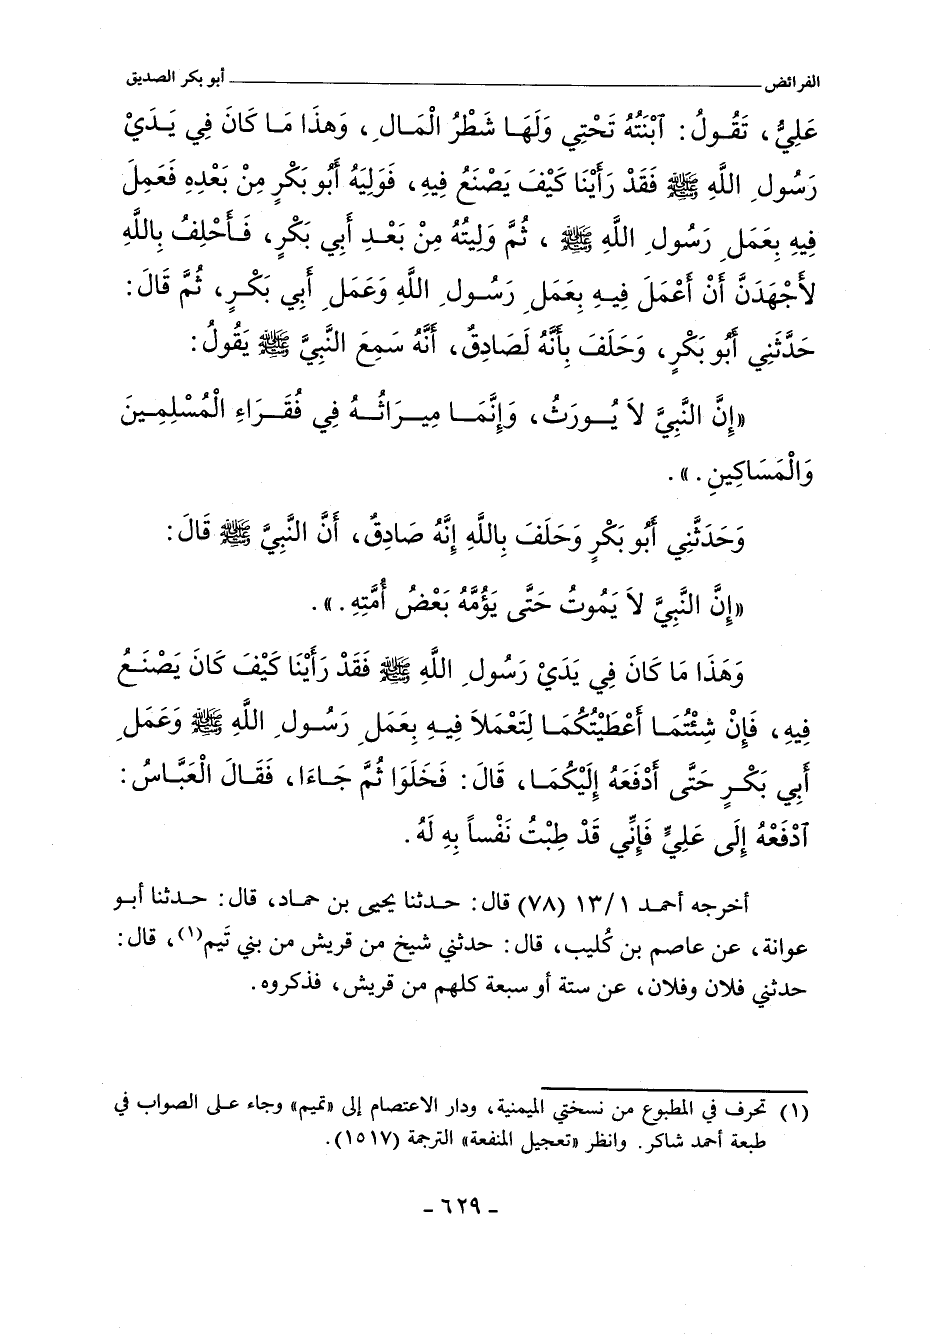 الفرائض أبو بكر الصديق
عَلِيُّ، تَقُولُ: ٱبْنَتُهُ تَحْتِي وَلَهَا شَطْرُ الْمَالِ، وَهذَا مَا كَانَ فِي يَدَيْ
رَسُولِ اللَّهِ ﷺ فَقَدْ رَأَيْنَا كَيْفَ يَصْنَعُ فِيهِ، فَوَلِيَهُ أَبُو بَكْرٍ مِنْ بَعْدِهِ فَعَمِلَ
فِيهِ بِعَمَلِ رَسُولِ اللَّهِ ﷺ، ثُمَّ وَلِيتُهُ مِنْ بَعْدِ أَبِي بَكْرٍ، فَأَحْلِفُ بِاللَّهِ
لأَجْهَدَنَّ أَنْ أَعْمَلَ فِيهِ بِعَمَلِ رَسُولِ اللَّهِ وَعَمَلِ أَبِي بَكْرٍ، ثُمَّ قَالَ:
حَدَّثَنِي أَبُو بَكْرٍ، وَحَلَفَ بِأَنَّهُ لَصَادِقٌ، أَنَّهُ سَمِعَ النَّبِيَّ ﷺ يَقُولُ:
«إِنَّ النَّبِيَّ لاَ يُورَثُ، وَإِنَّمَا مِيرَاثُهُ فِي فُقَرَاءِ الْمُسْلِمِينَ
وَالْمَسَاكِينِ.».
وَحَدَثَّنِي أَبُو بَكْرٍ وَحَلَفَ بِاللَّهِ إِنَّهُ صَادِقٌ، أَنَّ النَّبِيَّ ﷺ قَالَ:
«إِنَّ النَّبِيَّ لاَ يَمُوتُ حَتَّى يَؤُمَّهُ بَعْضُ أُمَّتِهِ.».
وَهَذَا مَا كَانَ فِي يَدَيْ رَسُولِ اللَّهِ ﷺ فَقَدْ رَأَيْنَا كَيْفَ كَانَ يَصْنَعُ
فِيهِ، فَإِنْ شِئْتُمَا أَعْطَيْتُكُمَا لِتَعْمَلاَ فِيهِ بِعَمَلِ رَسُولِ اللَّهِ ﷺ وَعَمَلِ
أَبِي بَكْرٍ حَتَّى أَدْفَعَهُ إِلَيْكُمَا، قَالَ: فَخَلَوَا ثُمَّ جَاءَا، فَقَالَ الْعَبَّاسُ:
ٱدْفَعْهُ إِلَى عَلِيٍّ فَإِنِّي قَدْ طِبْتُ نَفْساً بِهِ لَهُ.
أخرجه أحمد ١٣/١ (٧٨) قال: حدثنا يحيى بن حماد، قال: حدثنا أبو
عوانة، عن عاصم بن كُليب، قال: حدثني شيخ من قريش من بني تَيم(١)، قال:
حدثني فلان وفلان، عن ستة أو سبعة كلهم من قريش، فذكروه.
(١) تحرف في المطبوع من نسختي الميمنية، ودار الاعتصام إلى «تميم» وجاء على الصواب في
طبعة أحمد شاكر. وانظر «تعجيل المنفعة» الترجمة (١٥١٧).
- ٦٢٩ -